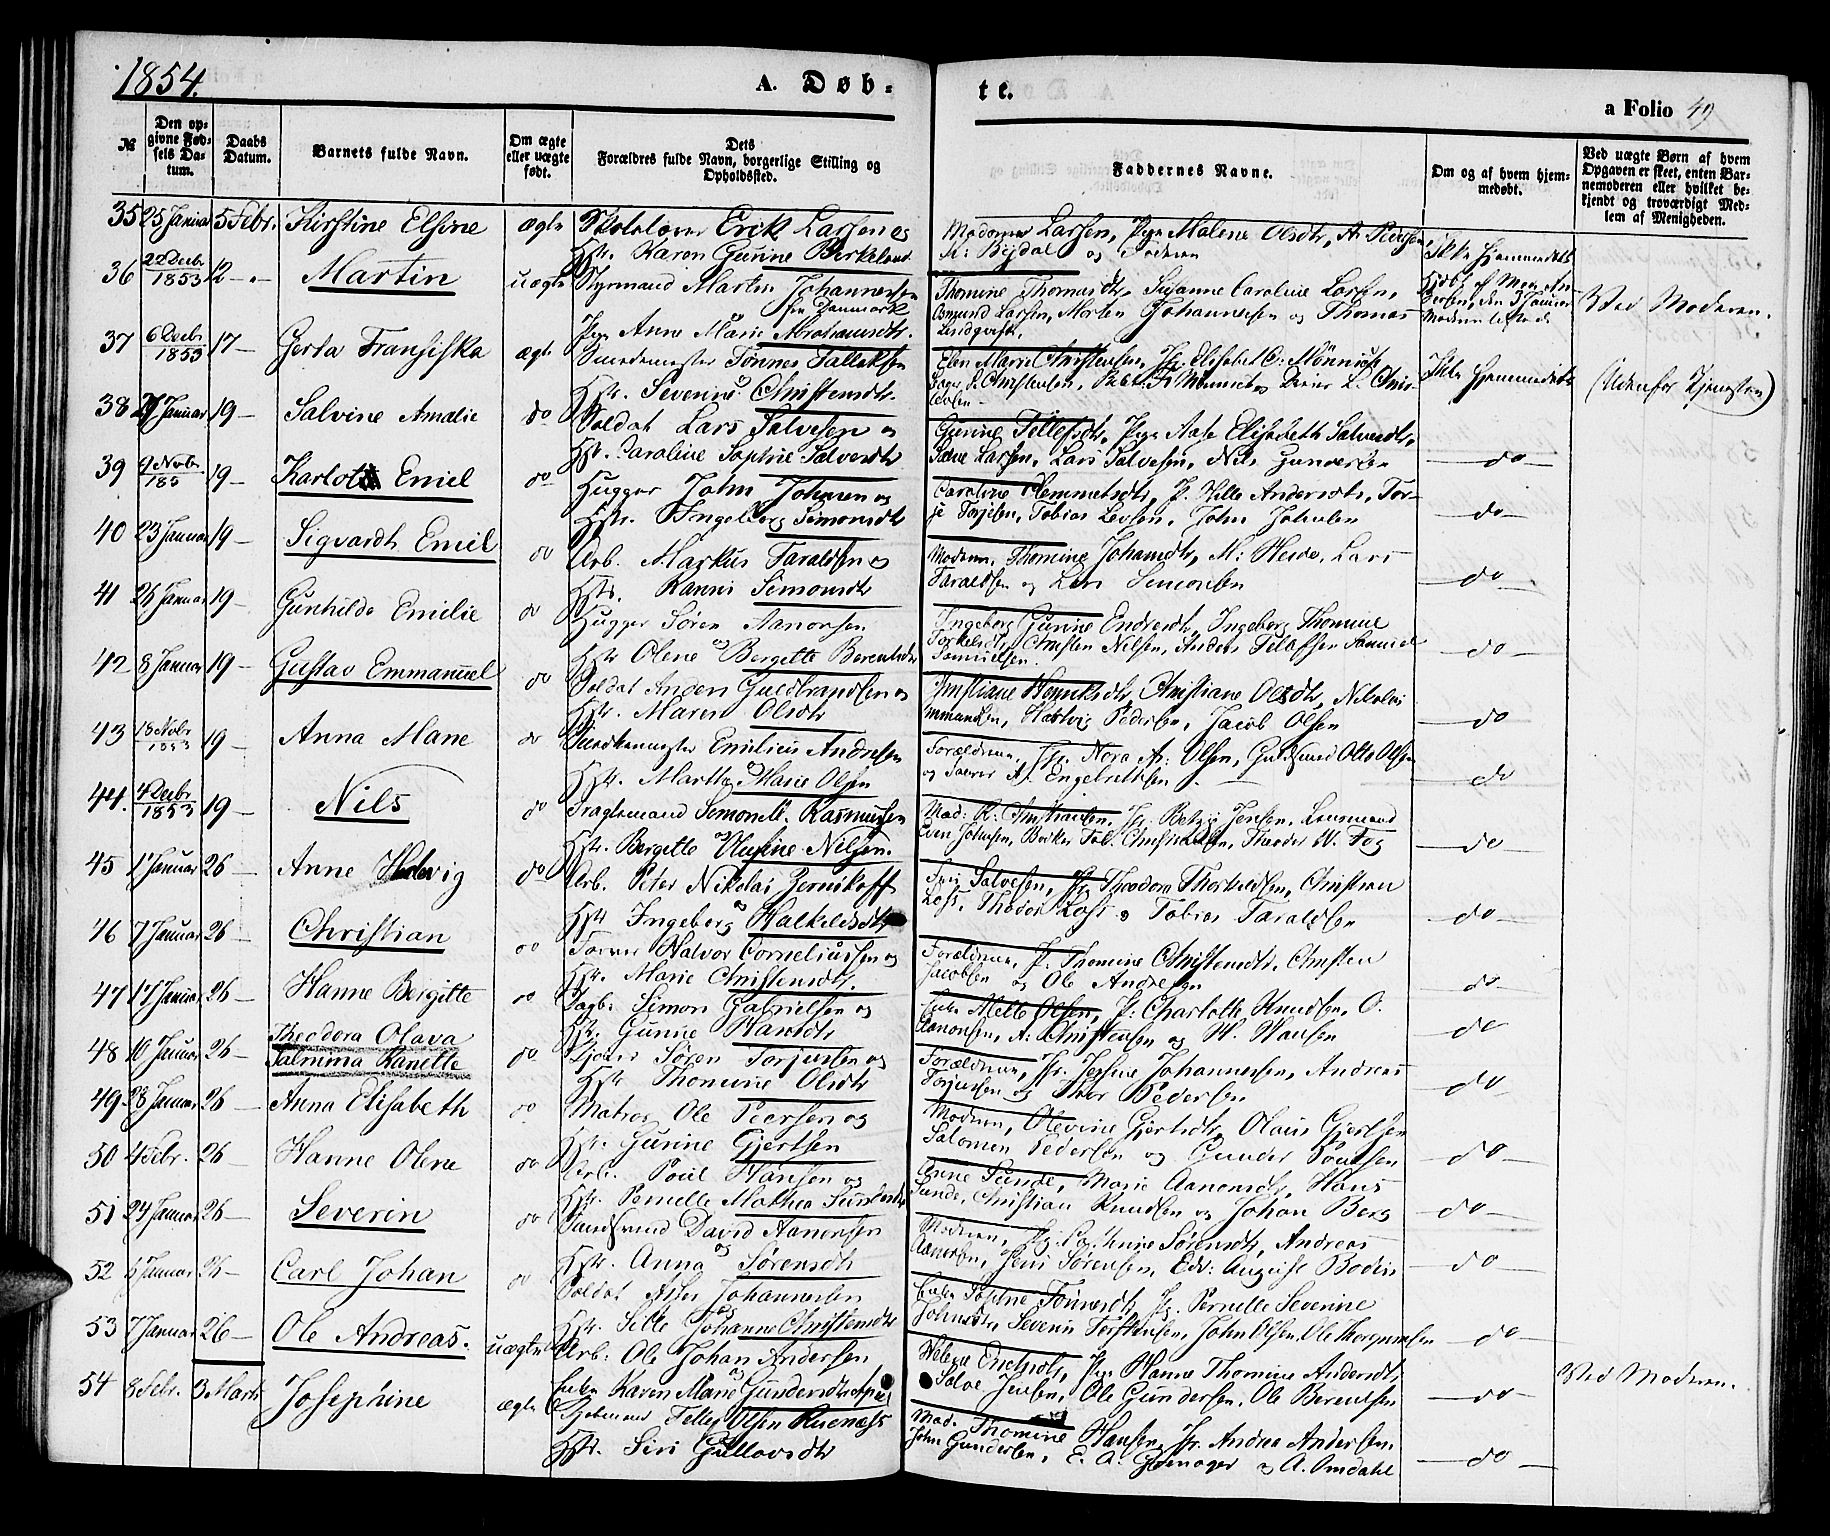 1854.
A. Døb-
te.
a Folio 49
№
Den op-
givne Fød-
sels Da-
tum.
Daabs
Datum.
Barnets fulde Navn.
Om ægte
eller uægte
født.
Dets
Forældres fulde Navn, borgerlige Stilling og
Opholdssted.
Faddernes Navne.
Om og af hvem hjem-
medøbt.
Ved uægte Børn af hvem
Opgaven er skeet, enten Bar-
nemoderen eller hvilket be-
kjendt og troværdigt Med-
lem af Menigheden.
35 25 Januar 5 Febr. Kirstine Elsine ægte Skolelærer Erik Larssen og
Hstr. Karen Gurine Birkeland
Madame Larsen, Pge Malene Olsdtr, A. Pedersen
og Faderen
Ikke hjemmedøbt
36 22 Decbr 1853 12 Martin uægte Styrmand Martin Johannessen
fra Danmark
Pige Anne Marie Abrahamsdtr.
Thomine Thomasdtr, Susanne Caroline Larsen,
Osmund Larssen, Morten Johannesen og Thomas
Lindqvist.
den 3 Januar
Ved Moderen.
37 6 Decbr 1853 17 Gerta Fransiska ægte Smedemester Tønnes Tallaksen
Hstr. Severine Christensdtr.
Elen Marie Christensen,
Ikke hjemmedøbt
38 27 Januar 19 Salvine Amalie do Soldat Lars Salvesen og
Hstr. Caroline Sophie Salvesdtr
Gurine Tellefsdtr, Pige Aase Elisabeth Salvesdtr,
Salve Larssen, Lars Salvesen, Nils Gundersen
do
39 9 Novbr 185 19 Karl Emiel do Hugger John Johnsen og
Hstr. Ingeborg Simonsdtr
Caroline Hemmetsdtr, P. Hille Andersdtr, Tor-
je Torjesen, Tobias Levsen, John Johnsen
do
40 23 Januar 19 Sigvardt Emiel do Arb. Markus Taraldsen og
Hstr. Kanni Simonsdtr
Moderen, Thomine Johansdtr, M: Heide, Lars
Taraldsen og Lars Simonsen
do
41 26 Januar 19 Gunhilde Emilie do Hugger Søren Aanonsen
og
Hstr Olene Bergitte Berentsdtr
Ingeborg Gurine Endresdtr, Ingeborg Thomine
Torkelsdtr, Christen Nilsen, Anders Tellefsen Samuel
Samuelsen.
do
42 8 Januar 19 Gustav Emmanuel do Soldat Anders Guldbrandsen og
Hstr. Maren Olsdtr
Christiane Henriksdtr, Christiane Olsdtr, Nikolai
Hartvig Pedersen, Jacob Olsen
do
43 18 Novbr 1853 19 Anna Mane do Emilius Andresen
Hstr. Marthe Marie Olsen
Forældrene, Nora A: Olsen, Otto Olsen
og A. Engebrethsen
do
44. 4 Decbr 1853 19 Nils do Fragtemand Simon Rasmussen
og
Hstr. Bergitte Nilsen.
Mad: K: Christiansen, Betzy Jensen, Lensmand
Even Johnsen, Theodor W. Fog
do
45 17 Januar 26 Anne Hedevig do Arb. Peter Nikolai Zernikoff
og
Hstr Ingeborg Halkildsdtr
Salvesen, Theodora Thorkildsen, Christian
Loss, Theodor Loss og Tobias Taraldsen
do
46 7 Januar 26 Christian do Halvor Corneliussen og
Hstr. Marie Christensdtr.
Forældrene, P. Thomine Christensdtr, Christen
Jacobsen og Ole Andresen
do
47 17 Januar 26 Hanne Bergitte do Dagb. Simon Gabrielsen og
Hstr. Gunne
Enke Mette Olsen, P: Charlotte Knudsen, O.
Aanonsen, A: Christensen og H. Hansen
do
48 10 Januar 26 Theodora Olava
Salmina Hanette
do Søren Torjussen og
Hstr Thomine Olsdtr
Forældrene, Johannessen, Andreas
Torjussen og Thor Pedersen
do
49 28 Januar 26 Anna Elisabeth do Matros Ole Peersen og
Hstr. Gurine Gjertsen
Moderen, Olevine Gjertsdtr, Olaus Gjertsen
Salomon Pedersen og Gunder Poulsen
do
50 4 Febr. 26 Hanne Olene do Arb. Poul Hansen og
Hstr. Pernelle Mathea
Anne Sunde, Marie Aanonsdtr, Hans
Sunde, Christian Knudsen og Johan Berg
do
51 24 Januar 26 Severin do David Aanonsen
og
Hstr. Anna Sørensdtr
Moderen, Pg. Cathrine Sørensdtr, Andreas
Aanonsen, Jens Sørensen, Edv: August Bodin
do
52 6 Januar 26 Carl Johan do Soldat Johannessen
og
Hstr. Sille Johanne Christensdtr
Enke Sophie Tønnesdtr, Pg. Pernelle Severine
Johnsdtr, Severin Torstensen, John Olsen, Ole Thorgrimsen
do
53 7 Januar 26 Ole Andreas. uægte Arb: Ole Johan Andersen
Enken Karen Marie Gundersdtr
Helene Erichsdtr, Pge Hanne Thomine Andersdtr,
Salve Jensen, Ole Gundersen, Ole Berentsen
do
Ved Moderen.
54 8 Febr. 3 Marts Josephine ægte Tellef Olsen Ruenæss
Hstr. Siri Gullovsdtr
Mad. Thomine Hansen, Jfr. Andrea Andersen,
John Gundersen, E. A. Grønager og A. Omdahl
do